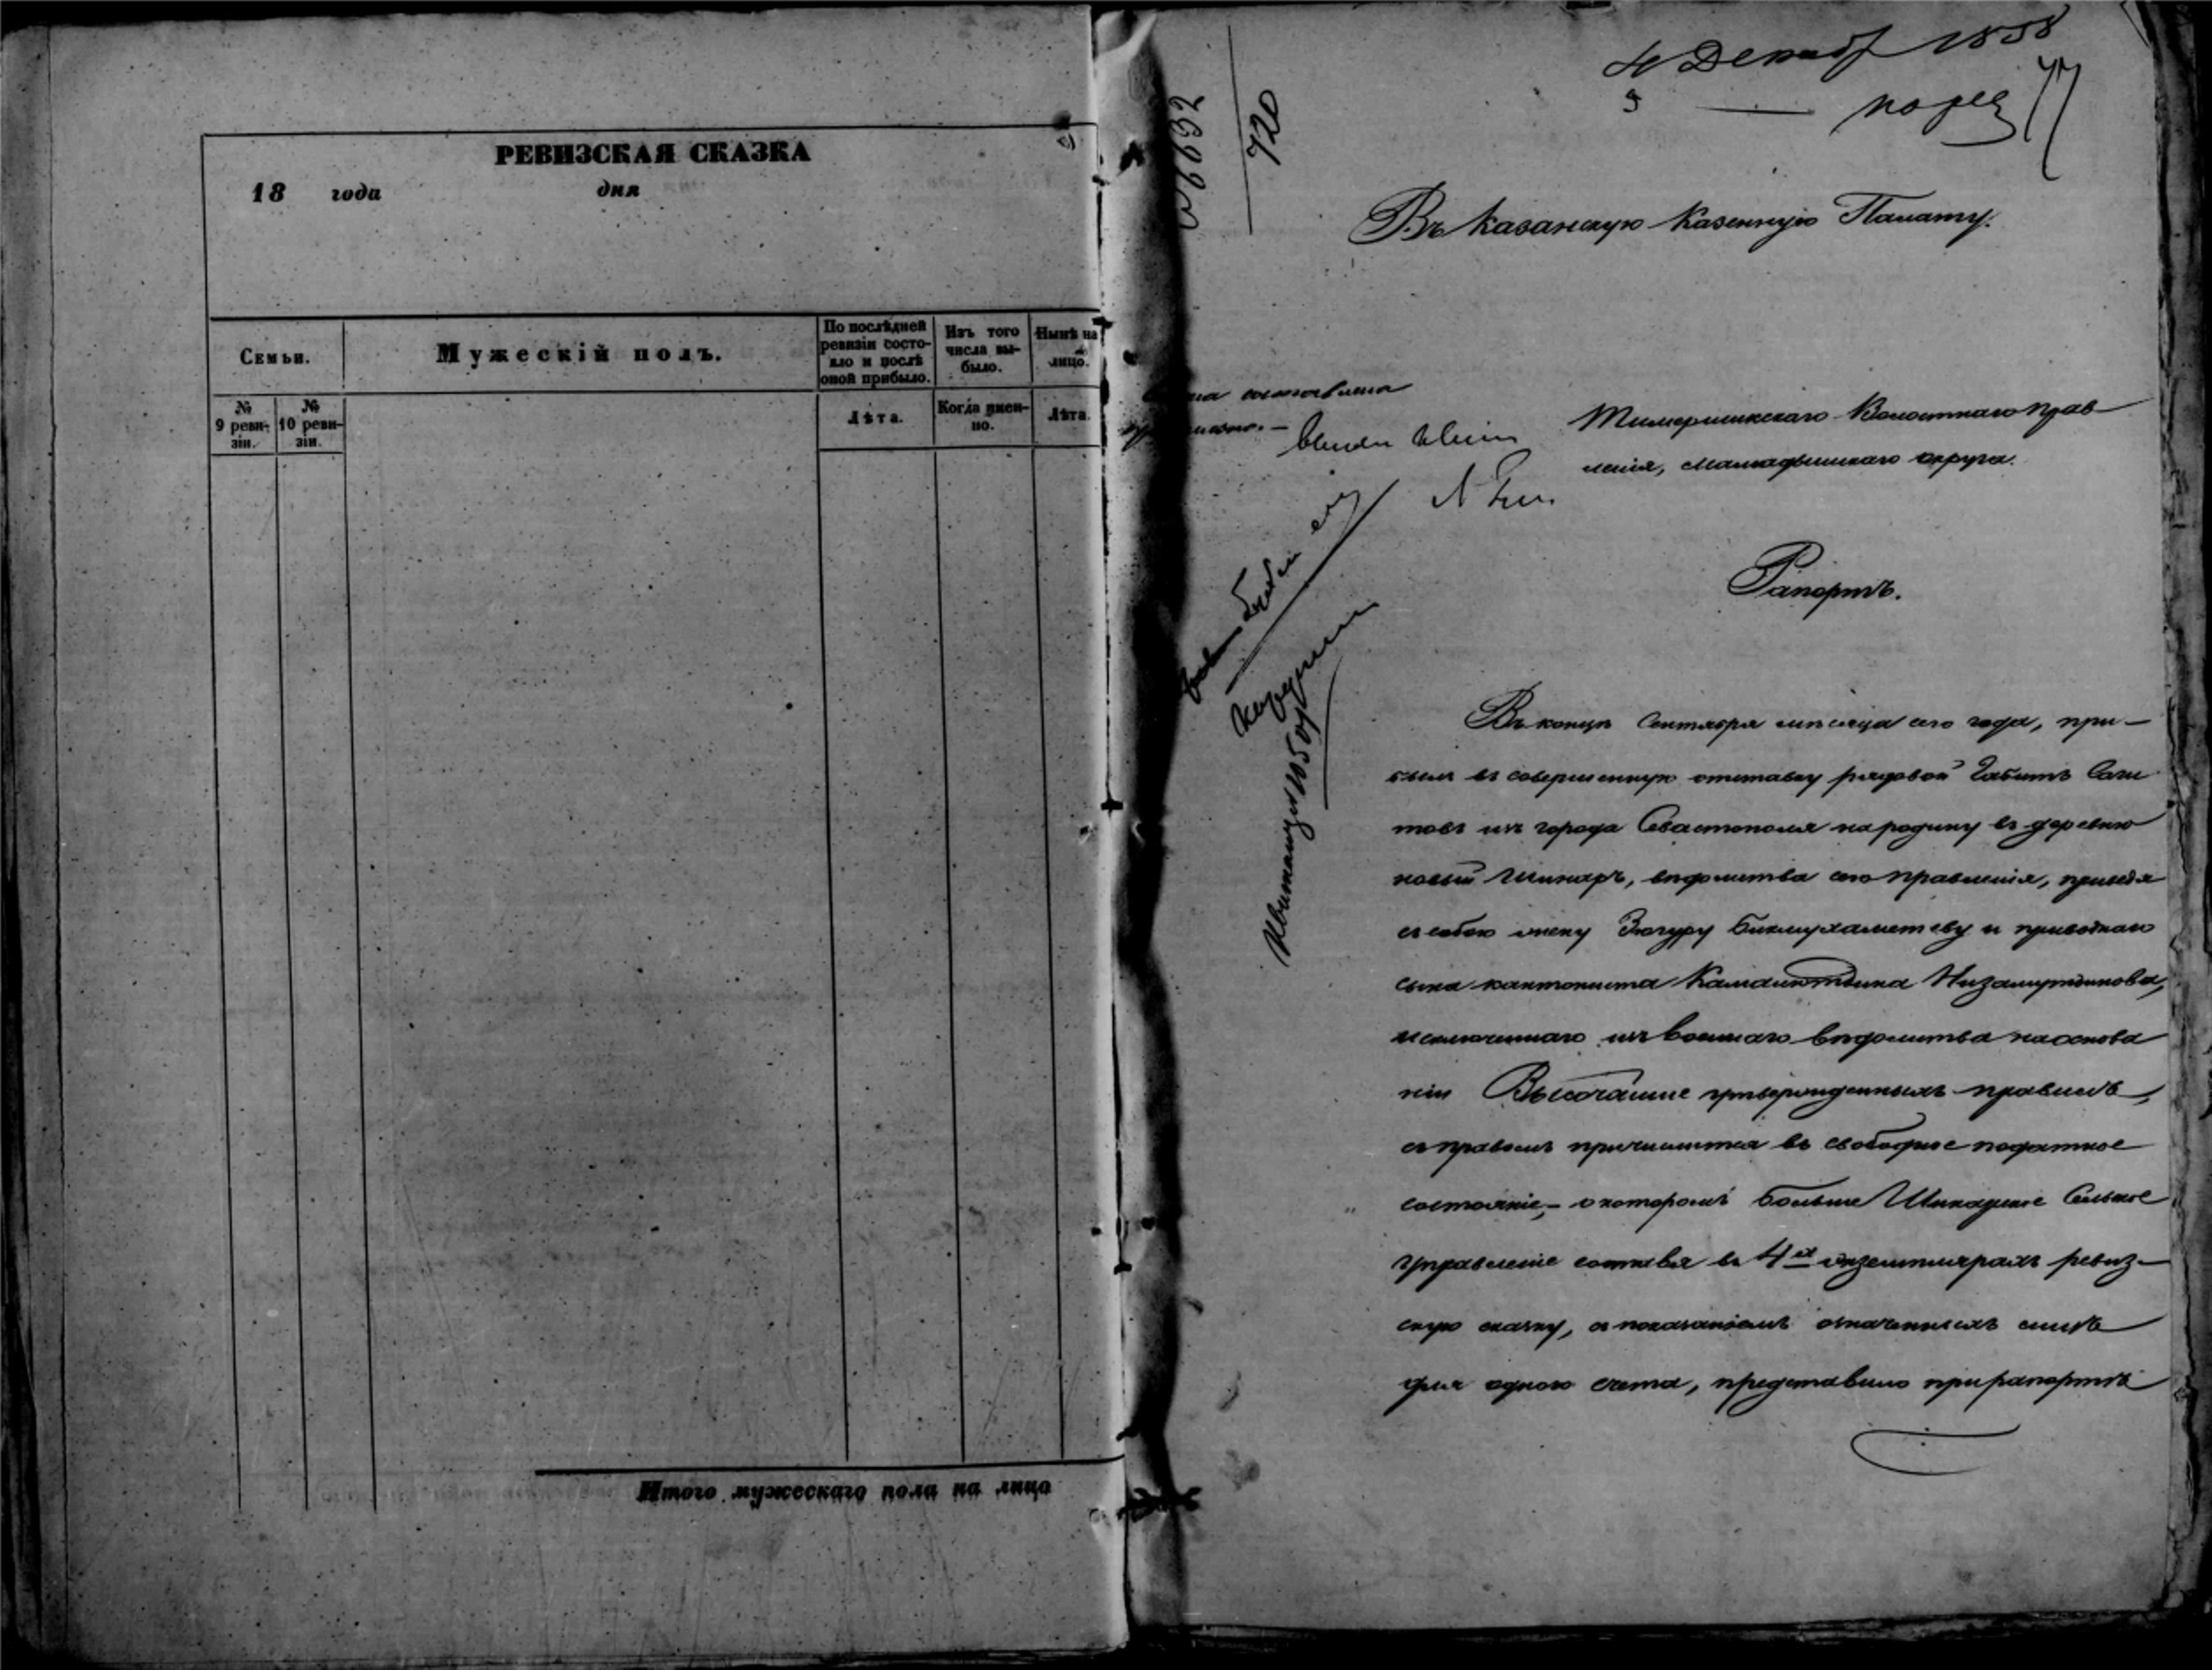 РЕВИЗСКАЯ СКАЗКА
18 года дня
Семьи.
Мужескій полъ.
По послѣдней ревизіи состо-
яло и послѣ
оной прибыло.
Изъ того
числа вы-
было.
Нынѣ на
лицо.
№
9 реви-
зіи.
№
10 реви-
зіи.
Лѣта.
Когда имен-
но.
Лѣта.
Итого мужескаго пола на лицо
4 Декабр 1858
5
77
720
Въ Казанскую Казенную Палату.
составлена
Тимершикскаго Волостнаго Прав-
ленія, Мамадышскаго округа.
Рапортъ.
Въ концѣ Сентября мѣсяца сего года, при-
былъ въ совершенную отставку рядовой Габитъ Саги
товъ изъ города Севастополя на родину въ деревню
новый Шинаръ, вѣдомства сего Правленія, приведя
съ собою жену Зюгуру Бикмухаметеву и приводнаго
сына кантониста Камалютдина Низамутдинова,
исключеннаго изъ военнаго вѣдомства на основа
ніи Высочайше утвержденныхъ правилъ,
съ правомъ причислится въ свободное податное
состояніе,- о которомъ Больше Шинарское Сельское
Управленіе составя въ 4х экземплярахъ ревиз-
скую сказку, съ показаніемъ означенныхъ лицъ
для одного счета, представило при рапортѣ